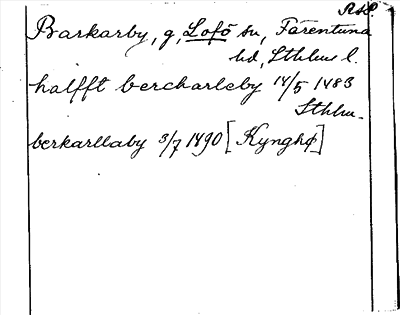 RAP.
Barkarby, g, Lofö sn, Färentuna
hd, Sthlms l.
halfft bercharleby 14/5 1483
Sthlm.
berkarllaby 3/7 1490 [Kynghø]